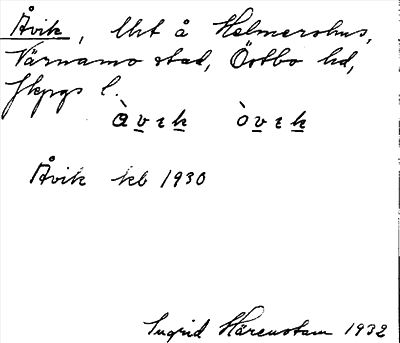 Åvik, lht å Helmershus,
Värnamo stad, Östbo hd,
Jkpgs l.
àvɩk òvɩk
Åvik kb 1930
Ingrid Härenstam 1932